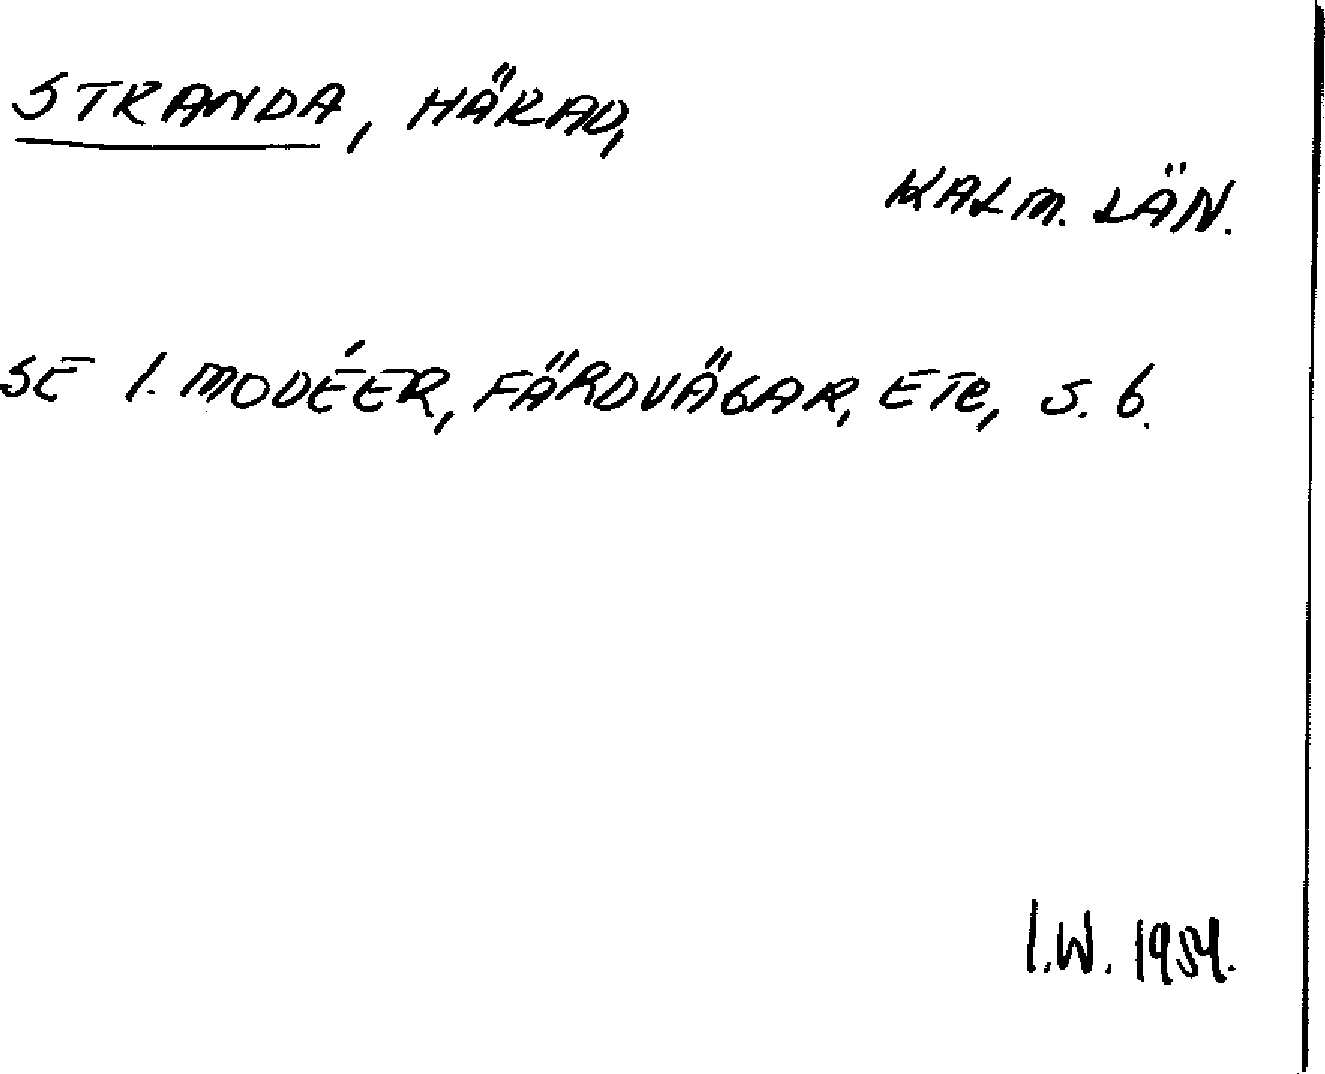 STRANDA, HÄRAD,
KALM. LÄN.
SE I. MODÉER, FÄRDVÄGAR, ETC, S. 6.
I.W. 1954.